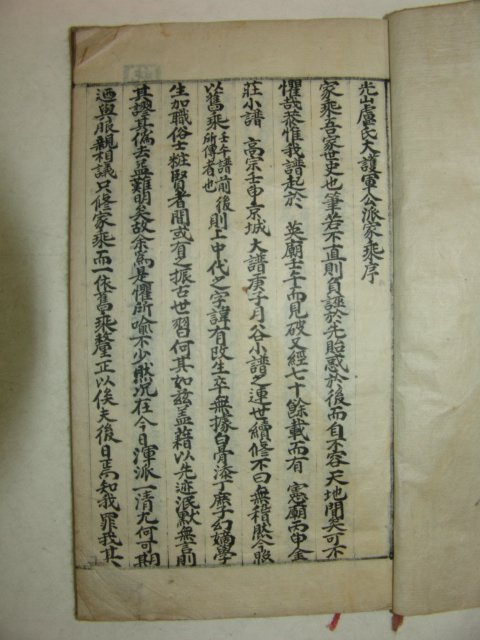 光山盧氏大護軍公派家乘序
家乘吾家世史也筆若不直則負誣於先貽惑於後而自不容天地間矣可不
懼哉恭惟我譜起於 英廟壬午而見破又經七十餘載而有 憲廟丙申金
莊小譜 高宗壬申京城大譜庚子月谷小譜之連世續修不曰無稽然今照
以舊乘壬午譜前所傳者也後則上中代之字諱有改生卒無據白骨漆丁麻子幻嫡學
生加職俗士粧賢者間或有之振古世習何其如玆盖藉以先迹泯默無言則
其謏其僞去益難明矣故余爲是懼所喩不少然况在今日渾派一清尤何可期
迺與服親相議只修家乘而一依舊乘釐正以俟夫後日焉知我罪我其